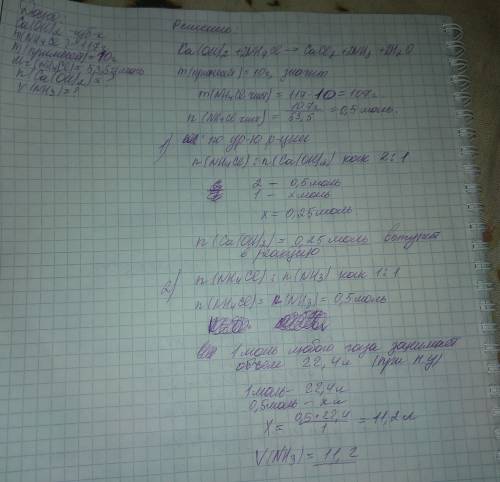 Дано:
Ca(OH)2
m(NH4Cl) = 117
m(примесей) = 10г
n(Ca(OH)2) = ?
V(NH3) = ?
Решение
Ca(OH)2 + 2NH4Cl → CaCl2 + 2NH3 + 2H2O
m(примесей) = 10г, значит
m(NH4Cl чист) = 117 - 10 = 107г
n(NH4Cl чист) = 107г / 53,5 = 0,5 моль.
1) по ур-ю р-ции
n(NH4Cl) : n(Ca(OH)2) как 2:1
2 – 0,5 моль
1 – x моль
x = 0,25 моль
n(Ca(OH)2) = 0,25 моль вступит
в реакцию
2) n(NH4Cl) : n(NH3) как 1:1
n(NH4Cl) = n(NH3) = 0,5 моль
1 моль любого газа занимает
объем 22,4 л (при н.у)
1 моль - 22,4 л
0,5 моль - x л
X = 0,5 * 22,4 / 1 = 11,2 л
V(NH3) = 11,2